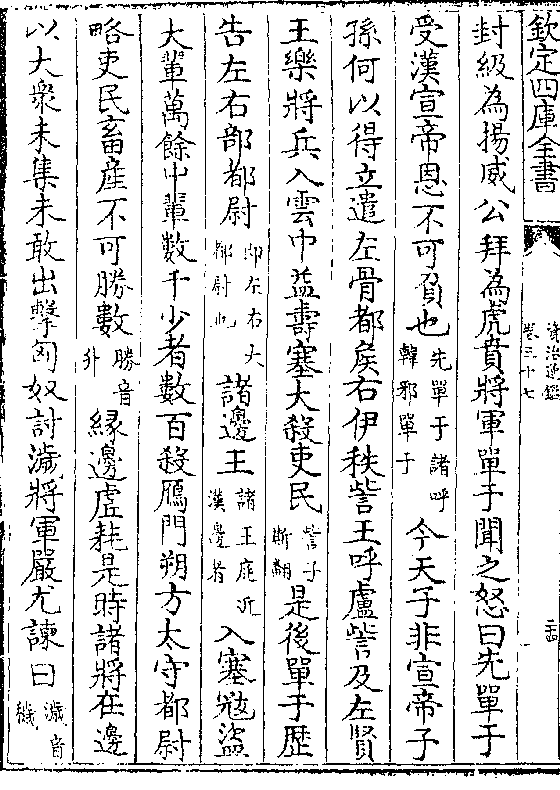 欽定四庫全書
資治通鑑
卷三十七
封級為揚威公拜為虎賁將軍單于聞之怒曰先單于
受漢宣帝恩不可負也先單于諸呼韓邪單于今天子非宣帝子
孫何以得立遣左骨都侯右伊秩訾王呼盧訾及左賢
王樂將兵入雲中益壽塞大殺吏民訾子斯翻是後單于歴
告左右部都尉即左右大都尉也諸邊王諸王庭近漢邊者入塞冦盜
大輩萬餘中輩數千少者數百殺鴈門朔方太守都尉
略吏民畜産不可勝數勝音升緣邊虛耗是時諸將在邊
以大衆未集未敢出擊匈奴討濊將軍嚴尤諫曰濊音穢